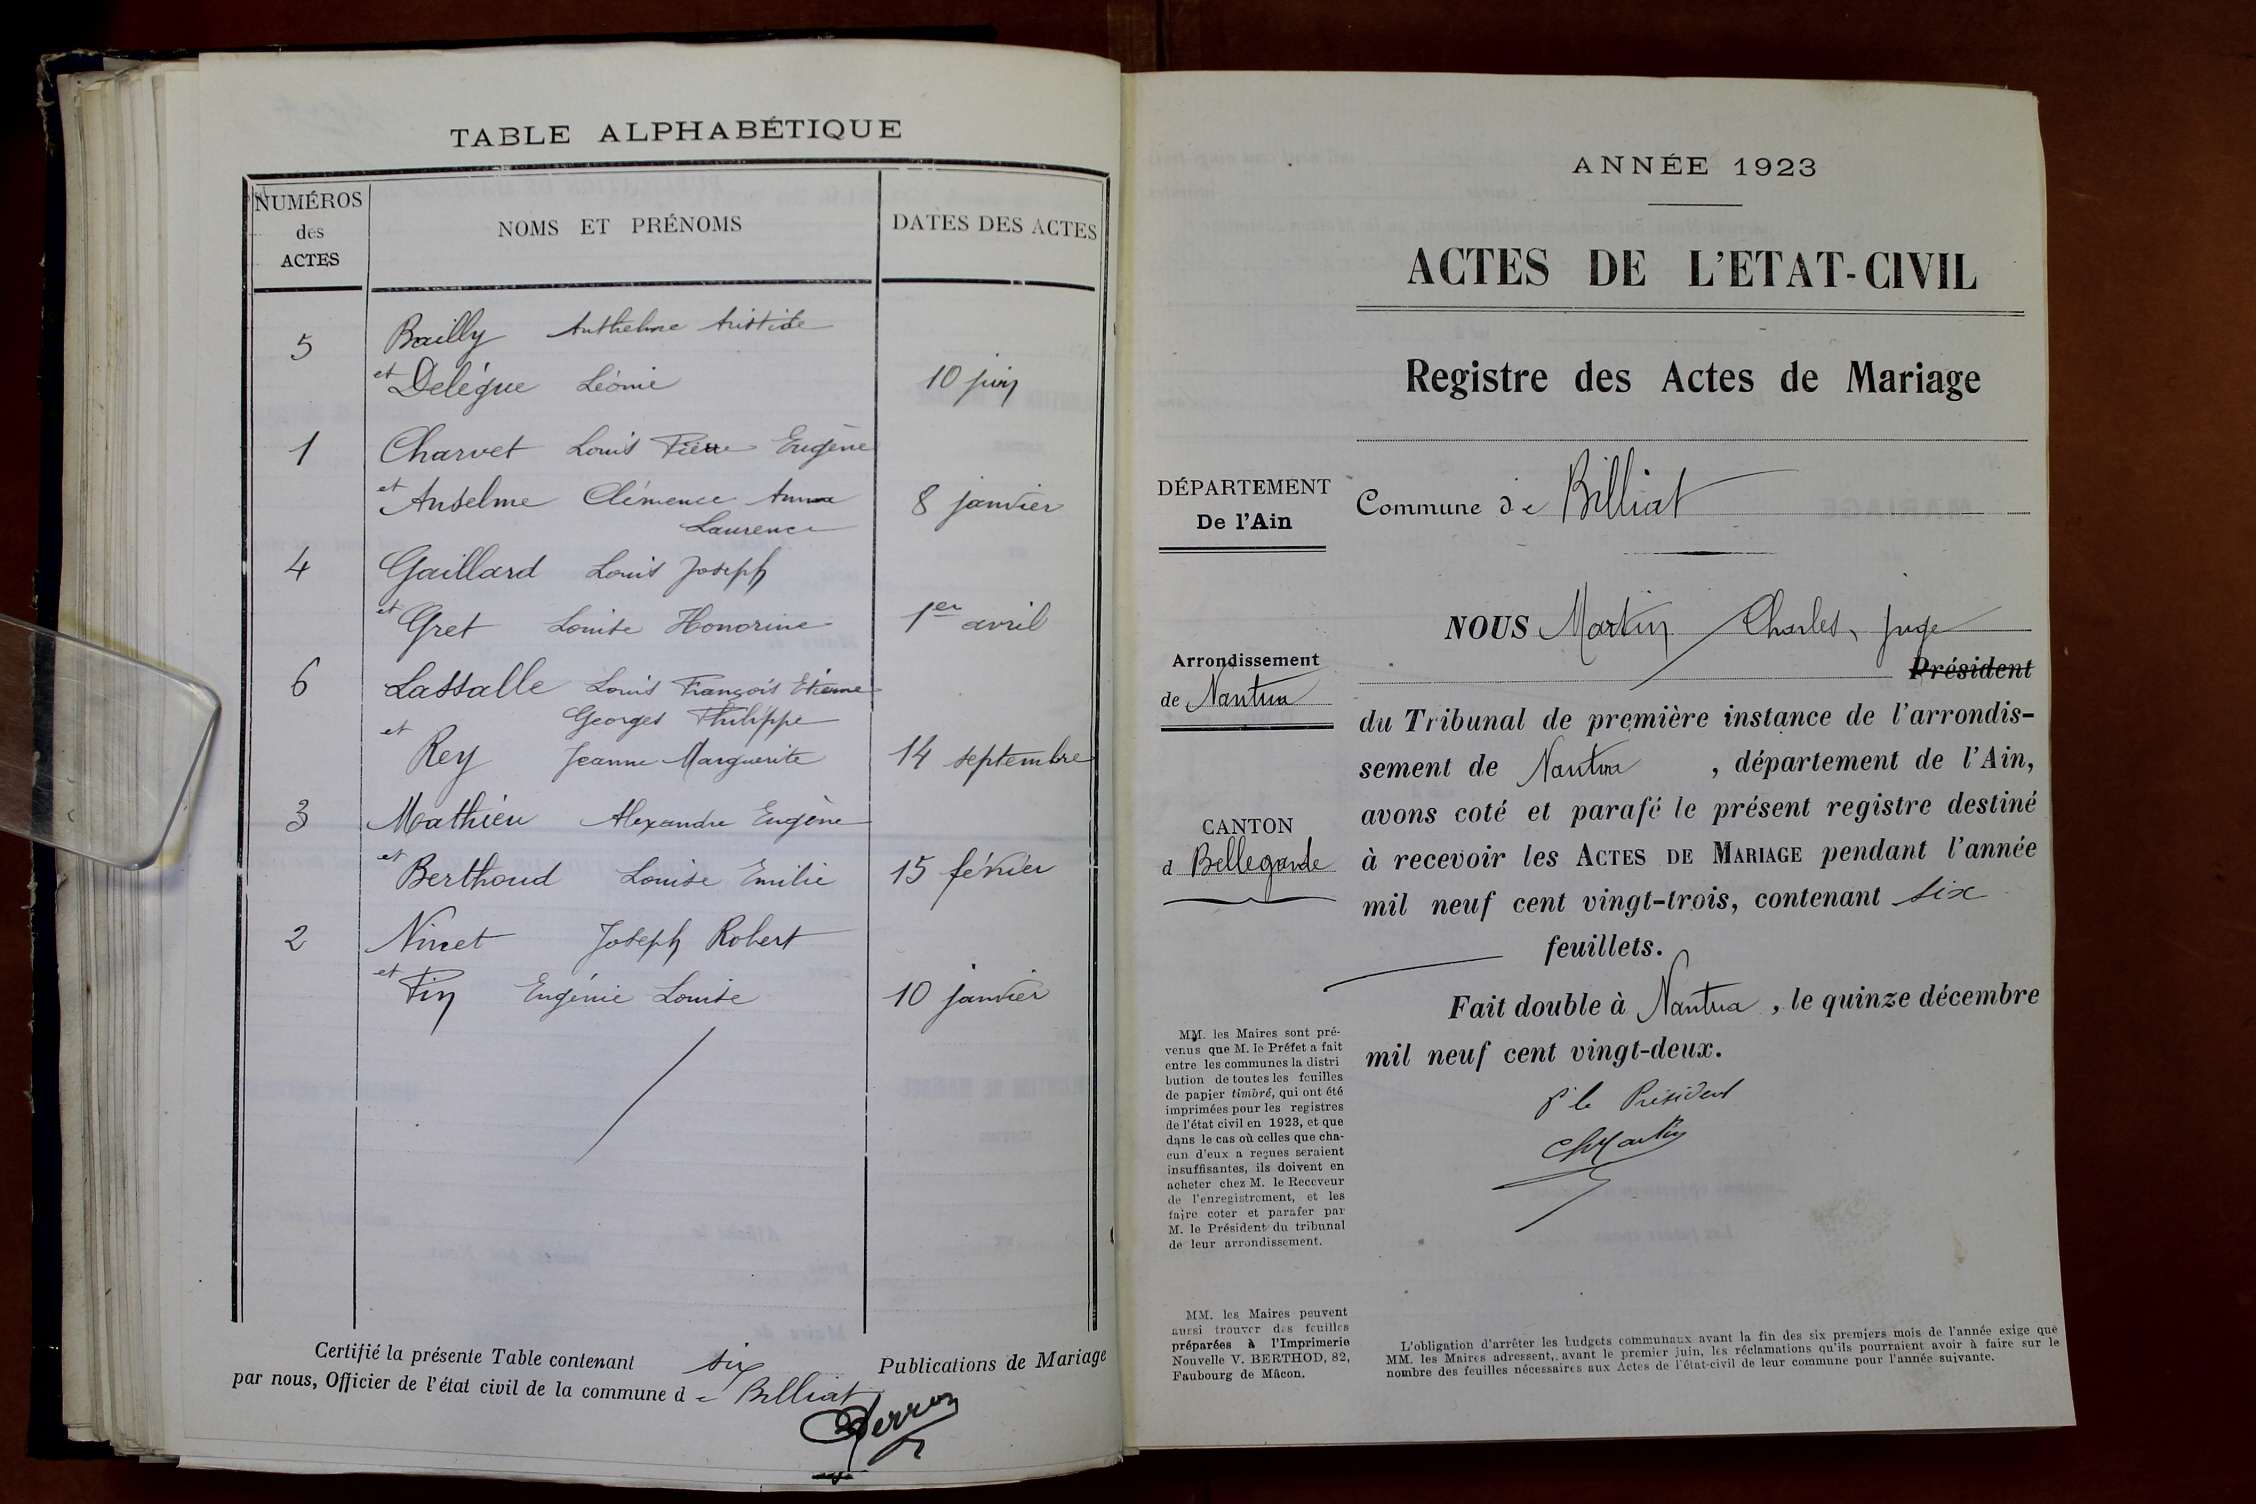 TABLE ALPHABÉTIQUE
NUMÉROS
des
ACTES
NOMS ET PRÉNOMS
DATES DES ACTES
5 Bailly Anthelme Aristide
et Delégue Léonie 10 juin
1 Charvet Louis Pierre Eugène
et Anselme Clémence Anna 8 janvier
Laurence
4 Gaillard Louis Joseph
et Gret Louise Honorine 1er avril
6 Lassalle Louis François Etienne
Georges Philippe
et Rey Jeanne Marguerite 14 septembre
3 Mathieu Alexandre Eugène
et Berthoud Louise Emilie 15 février
2 Ninet Joseph Robert
et Pin Eugénie Louise 10 janvier
Certifié la présente Table contenant six Publications de Mariage
par nous, Officier de l'état civil de la commune de Billiat
Perron
ANNÉE 1923
ACTES DE L'ETAT-CIVIL
Registre des Actes de Mariage
DÉPARTEMENT
De l'Ain
Commune de Billiat
Arrondissement
de Nantua
CANTON
d Bellegarde
NOUS Martin Charles, juge
Président
du Tribunal de première instance de l'arrondis-
sement de Nantua, département de l'Ain,
avons coté et parafé le présent registre destiné
à recevoir les ACTES DE MARIAGE pendant l'année
mil neuf cent vingt-trois, contenant six
feuillets.
Fait double à Nantua, le quinze décembre
mil neuf cent vingt-deux.
pr le Président
ChMartin
MM. les Maires sont pré-
venus que M. le Préfet a fait
entre les communes la distri
bution de toutes les feuilles
de papier timbré, qui ont été
imprimées pour les registres
de l'état civil en 1923, et que
dans le cas où celles que cha-
cun d'eux a reçues seraient
insuffisantes, ils doivent en
acheter chez M. le Receveur
de l'enregistrement, et les
faire coter et parafer par
M. le Président du tribunal
de leur arrondissement.
MM. les Maires peuvent
aussi trouver des feuilles
préparées à l'Imprimerie
Nouvelle V. BERTHOD, 82,
Faubourg de Mâcon.
L'obligation d'arrêter les budgets communaux avant la fin des six premiers mois de l'année exige que
MM. les Maires adressent, avant le premier juin, les réclamations qu'ils pourraient avoir à faire sur le
nombre des feuilles nécessaires aux Actes de l'état-civil de leur commune pour l'année suivante.